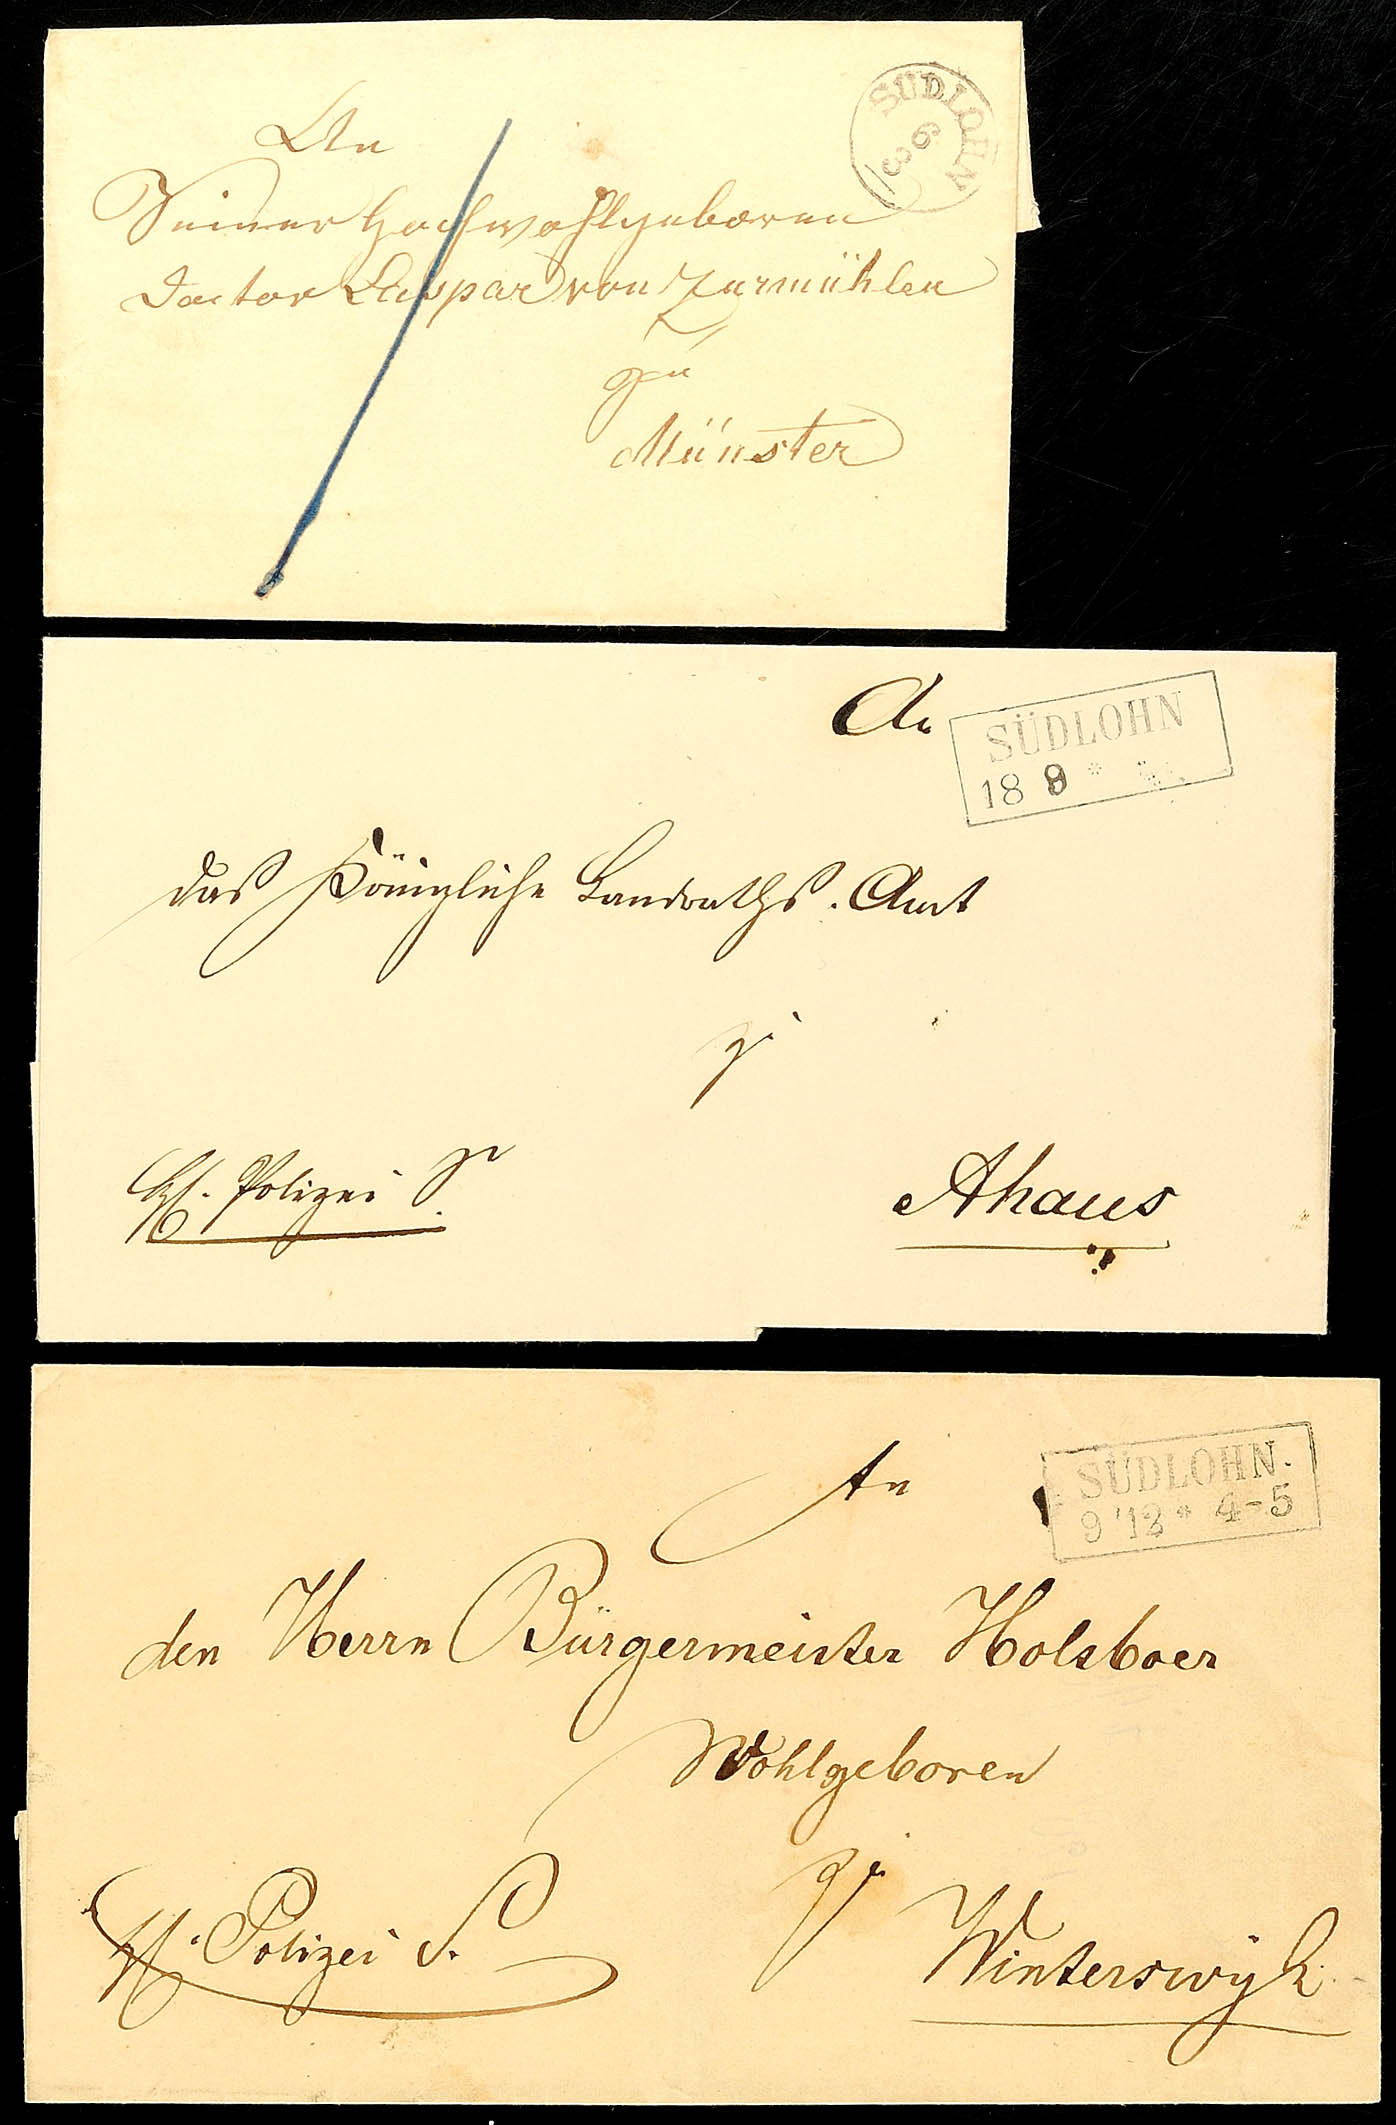 An
SÜDLOHN
6
8
Seiner Hochwohlgeboren
Doctor Caspar von Zurmühlen
zu
Münster
An
SÜDLOHN
18 9 *
das Königliche Landraths-Amt
zu
Polizei
Ahaus
An
SÜDLOHN.
9 12 * 4-5
den Herrn Bürgermeister Holsboer
Wohlgeboren
zu
Polizei S.
Winterswyk